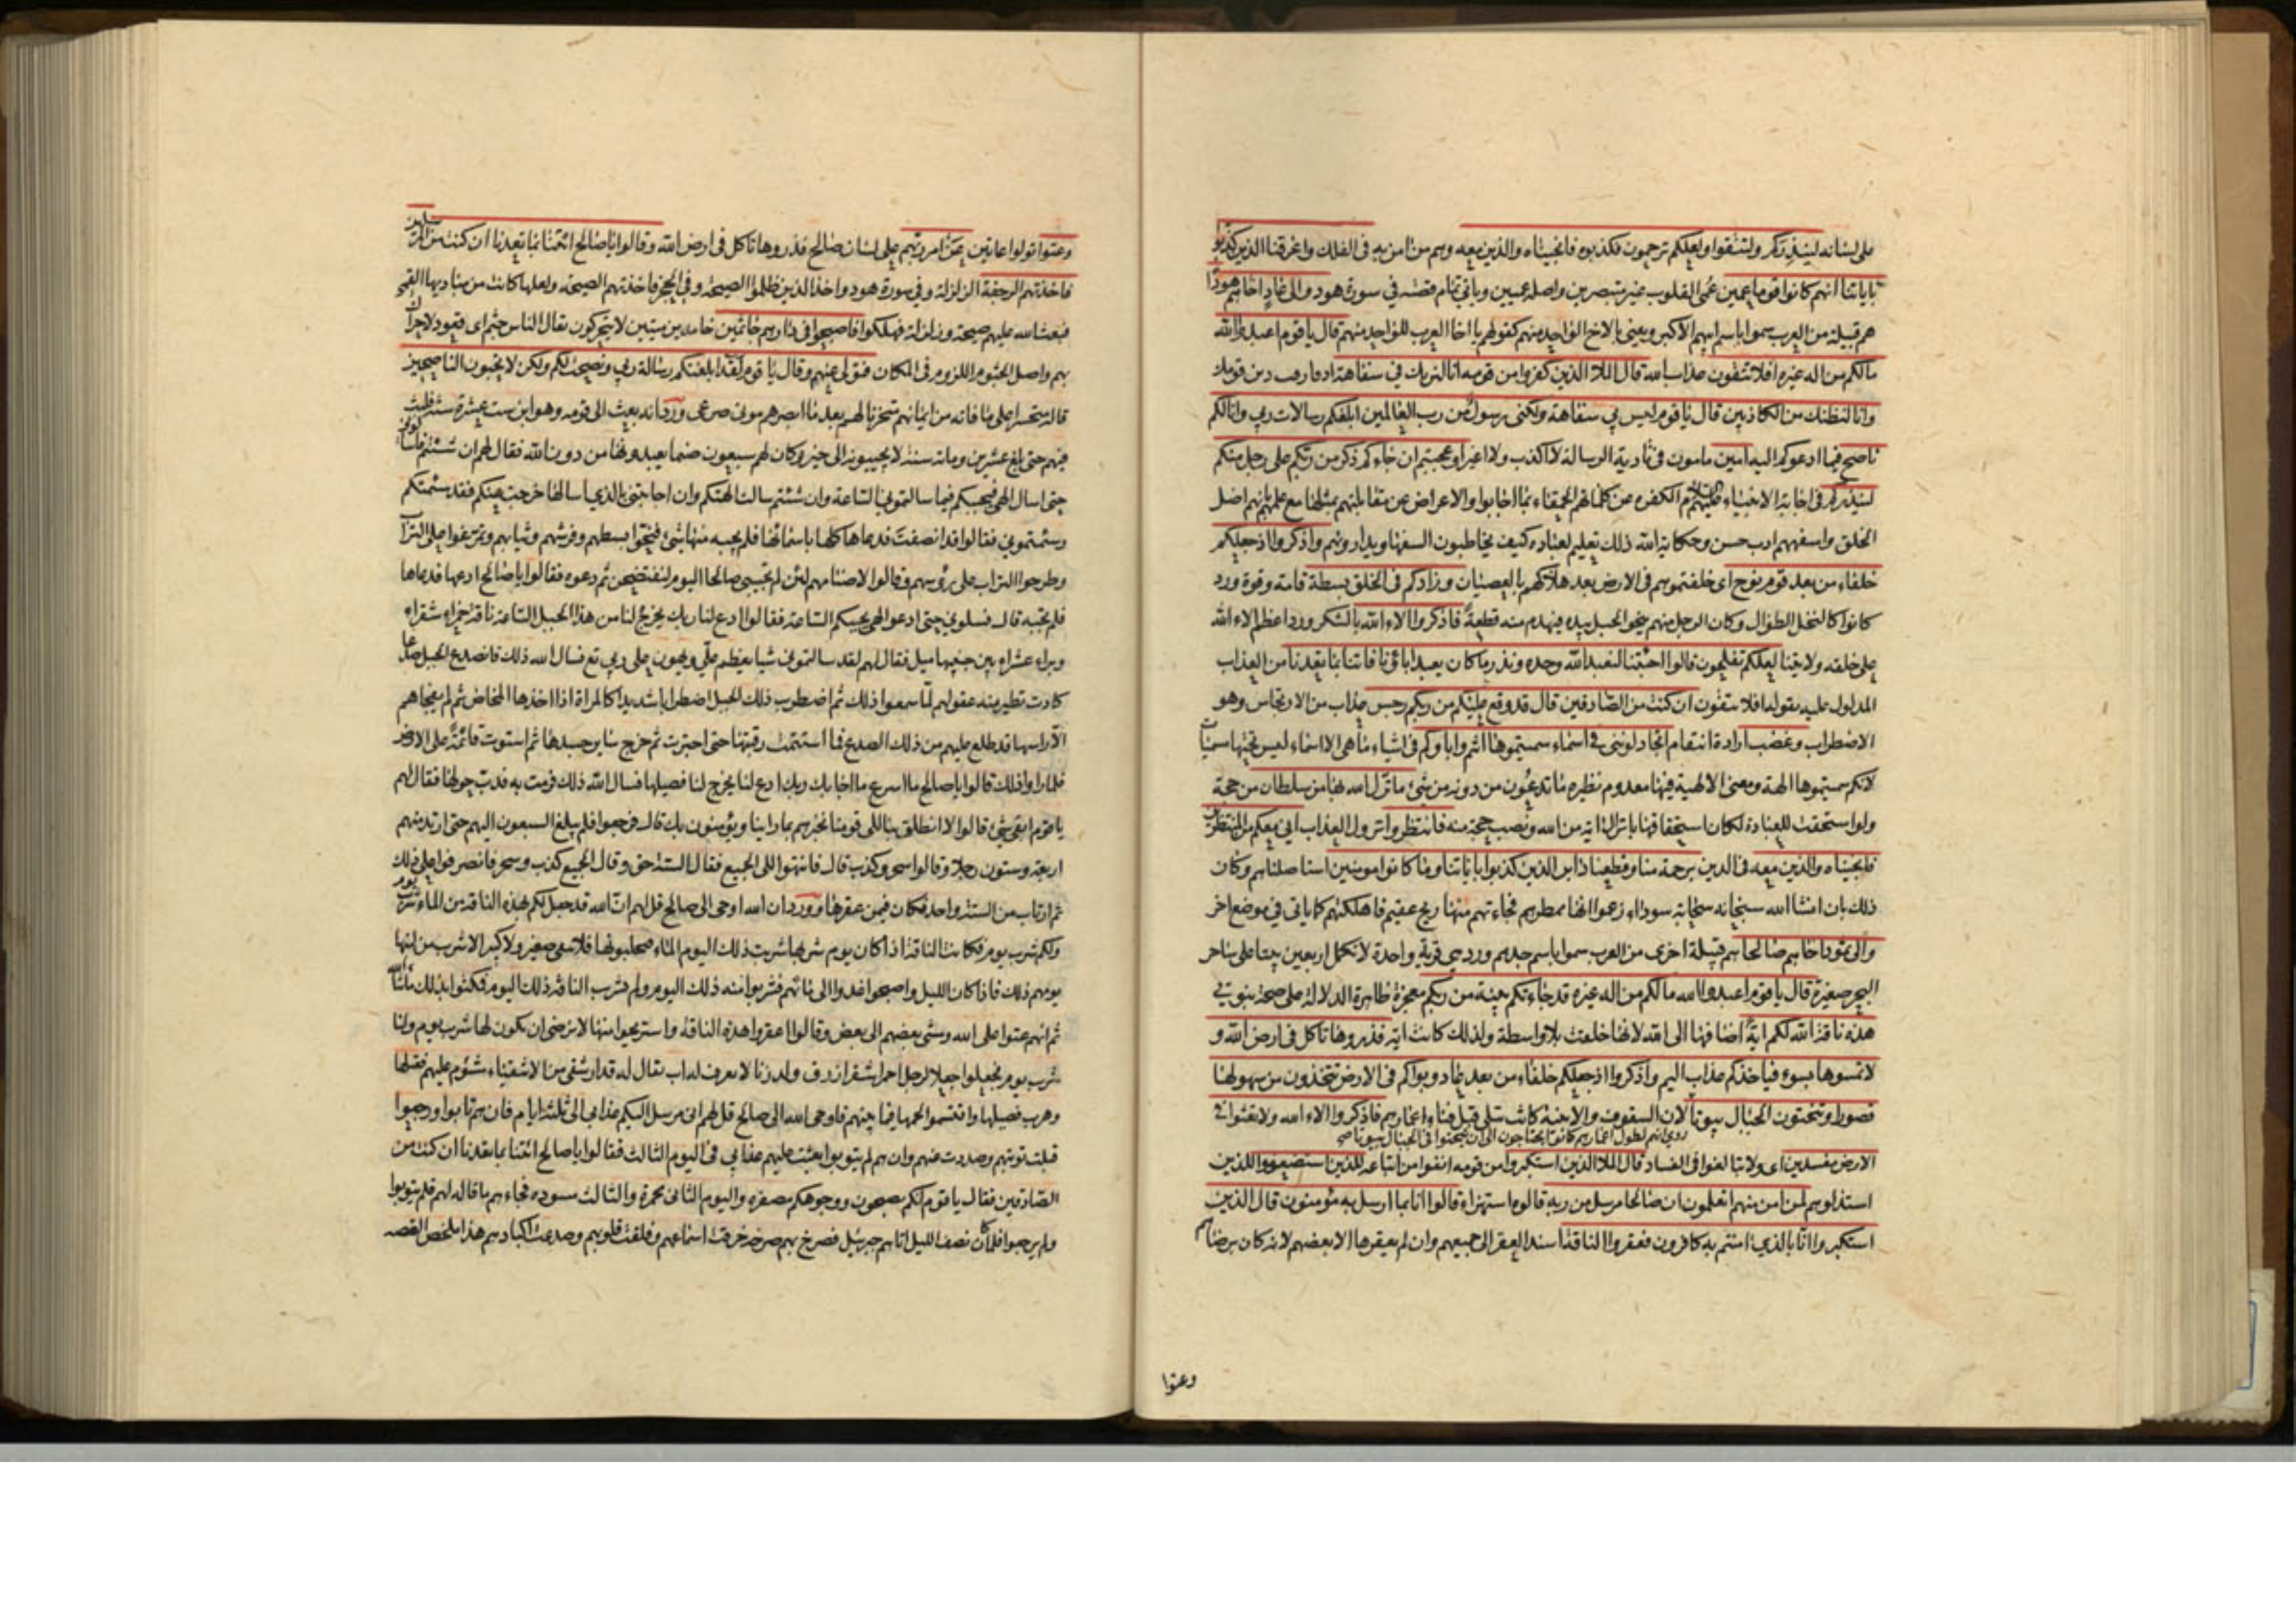 على لسانه لينذركم ولتتقوا ولعلكم ترحمون فكذبوه فانجيناه والذين معه وهم من امن به فى الفلك واغرقنا الذين كذبوا
باياتنا انهم كانوا قوما عمين عمى القلوب غير متبصرين واصله عميين وياتي تمام قصته في سورة هود والى عاد اخاهم هودا
هم قبيلة من العرب سموا باسم ابيهم الاكبر ويعنى بالاخ الواحد منهم كقولهم يا اخا العرب للواحد منهم قال يا قوم اعبدوا الله
مالكم من اله غيره افلا تتقون عذاب الله قال الملا الذين كفروا من قومه انا لنريك في سفاهة اذ فارقت دين قومك
وانا لنظنك من الكاذبين قال يا قوم ليس بي سفاهة ولكنى رسول من رب العالمين ابلغكم رسالات ربي وانا لكم
ناصح فيما ادعوكم اليه امين مامون فى تادية الرسالة لا اكذب ولا اغير اوعجبتم ان جاءكم ذكر من ربكم على رجل منكم
لينذركم فى اجابة الانبياء عليهم الكفرة عن كلماتهم الحمقاء بما اجابوا والاعراض عن مقابلتهم بمثلها مع علمهم بانهم اضل
الخلق واسفههم ادب حسن وحكاية الله ذلك تعليم لعباده كيف يخاطبون السفهاء ويدارونهم واذكروا اذ جعلكم
خلفاء من بعد قوم نوح اى خلفتموهم فى الارض بعد هلاكهم بالعصيان وزادكم فى الخلق بسطة قامة وقوة ورد
كانوا كالنخل الطوال وكان الرجل منهم ينحو الجبل بيده فيهدم منه قطعة فاذكروا الاء الله بالشكر ورد اعظم الاء الله
على خلقه ولايتنا لعلكم تفلحون قالوا اجئتنا لنعبد الله وحده ونذر ما كان يعبد اباؤنا فاتنا بما تعدنا من العذاب
المدلول عليه بقوله افلا تتقون ان كنت من الصادقين قال قد وقع عليكم من ربكم رجس عذاب من الارتجاس وهو
الاضطراب وغضب ارادة انتقام اتجادلوننى في اسماء سميتموها انتم واباؤكم فى اشياء ما هى الا اسماء ليس تحتها مسميات
لانكم سميتموها الهة ومعنى الالهية فيها معدوم نظيره ما تدعون من دونه من شئ ما نزل الله بها من سلطان من حجة
ولو استحقت للعبادة لكان استحقاقها بانزال اية من الله ونصب حجة منه فانتظروا نزول العذاب انى معكم من المنتظرين
فانجيناه والذين معه فى الدين برحمة منا وقطعنا دابر الذين كذبوا باياتنا وما كانوا مومنين استاصلناهم وكان
ذلك بان انشا الله سبحانه سحابة سوداء زعموا انها ممطرهم فجاءتهم منها ريح عقيم فاهلكتهم كما ياتى في موضع اخر
والى ثمود اخاهم صالحا هم قبيلة اخرى من العرب سموا باسم جدهم ورد هي قرية واحدة لا تكمل اربعين بيتا على ساحر
البحر صغيرة قال يا قوم اعبدوا الله مالكم من اله غيره قد جاءتكم بينة من ربكم معجزة ظاهرة الدلالة على صحة نبوتي
هذه ناقة الله لكم اية اضافها الى الله لانها خلقت بلا واسطة ولذلك كانت اية فذروها تاكل فى ارض الله و
لا تمسوها بسوء فياخذكم عذاب اليم واذكروا اذ جعلكم خلفاء من بعد عاد وبواكم فى الارض تتخذون من سهولها
قصورا وتنحتون الجبال بيوتا لان السقوف والابنية كانت تبلى قبل فناء اعمارهم فاذكروا الاء الله ولا تعثوا في
روى انهم لطول اعمارهم كانوا يحتاجون الى ان ينحتوا فى الجبال بيوتا صح
الارض مفسدين اى ولا تبالغوا فى الفساد قال الملا الذين استكبروا من قومه انفوا من اتباعه للذين استضعفوا للذين
استذلوهم لمن امن منهم اتعلمون ان صالحا مرسل من ربه قالوه استهزاء قالوا انا بما ارسل به مؤمنون قال الذين
استكبروا انا بالذي امنتم به كافرون فعقروا الناقة اسند العقر الى جميعهم وان لم يعقرها الا بعضهم لانه كان برضاهم
وعتوا
وعتوا تولوا عاتين عن امر ربهم على لسان صالح فذروها تاكل فى ارض الله وقالوا يا صالح ائتنا بما تعدنا ان كنت من المرسلين
فاخذتهم الرجفة الزلزلة وفي سورة هود واخذ الذين ظلموا الصيحة وفى الحجر فاخذتهم الصيحة ولعلها كانت من مباديها القمى
فبعث الله عليهم صيحة وزلزلة فهلكوا فاصبحوا فى دارهم جاثمين خامدين ميتين لا يتحركون يقال الناس جثم اى قعود لا حراك
بهم واصل الجثوم اللزوم فى المكان فتولى عنهم وقال يا قوم لقد ابلغتكم رسالة ربي ونصحت لكم ولكن لا تحبون الناصحين
قاله متحسرا على ما فاته من ايمانهم متحزنا لهم بعد ما ابصرهم موتى صرعى ورد انه بعث الى قومه وهو ابن ست عشرة سنة فلبث
فيهم حتى بلغ عشرين ومائة سنة لا يجيبونه الى خير وكان لهم سبعون صنما يعبدونها من دون الله فقال لهم ان شئتم فاسالونى
حتى اسال الهى فيجيبكم فيما سالتمونى الساعة وان شئتم سالت الهتكم وان اجابتنى بالذي اسالها خرجت عنكم فقد سئمتكم
وسئمتمونى فقالوا قد انصفت فدعاها كلها باسمائها فلم يجبه منها شئ فنحوا بسطهم وفرشهم وثيابهم وتمرغوا على التراب
وطرحوا التراب على رؤسهم وقالوا لاصنامهم لئن لم تجيبى صالحا اليوم لنفتضحن ثم دعوه فقالوا يا صالح ادعها فدعاها
فلم تجبه قال فسلونى حتى ادعو الهى يجيبكم الساعة فقالوا ادع لنا ربك يخرج لنا من هذا الجبل الساعة ناقة حمراء شقراء
وبراء عشراء بين جنبيها ميل فقال لهم لقد سالتمونى شيا يعظم علي ويهون على ربي تع فسال الله ذلك فانصدع الجبل صدعا
كادت تطير منه عقولهم لما سمعوا ذلك ثم اضطرب ذلك الجبل اضطرابا شديدا كالمراة اذا اخذها المخاض ثم لم يفجاهم
الا راسها قد طلع عليهم من ذلك الصدع فما استتمت رقبتها حتى اجترت ثم خرج سائر جسدها ثم استوت قائمة على الارض
فلما راوا ذلك قالوا يا صالح ما اسرع ما اجابك ربك ادع لنا يخرج لنا فصيلها فسال الله ذلك فرمت به فدب حولها فقال لهم
يا قوم ابقى شئ قالوا لا انطلق بنا الى قومنا نخبرهم بما راينا ويؤمنون بك قال فرجعوا فلم يبلغ السبعون اليهم حتى ارتد منهم
اربعة وستون رجلا وقالوا سحر وكذب قال فانتهوا الى الجميع فقال الستة حق وقال الجميع كذب وسحر فانصرفوا على ذلك
ثم ارتاب من الستة واحد فكان فيمن عقرها وورد ان الله اوحى الى صالح قل لهم ان الله قد جعل لكم هذه الناقة من الماء شرب يوم
ولكم شرب يوم فكانت الناقة اذا كان يوم شربها شربت ذلك اليوم الماء فيحلبونها فلا يبقى صغير ولا كبير الا شرب من لبنها
يومهم ذلك فاذا كان الليل واصبحوا غدوا الى مائهم فشربوا منه ذلك اليوم ولم تشرب الناقة ذلك اليوم فمكثوا بذلك ماشاء الله
ثم انهم عتوا على الله ومشى بعضهم الى بعض وقالوا اعقروا هذه الناقة واستريحوا منها لا نرضى ان يكون لها شرب يوم ولنا
شرب يوم فجعلوا جعلا لرجل احمر اشقر ازرق ولد زنا لا يعرف له اب يقال له قدار شقى من الاشقياء مشؤم عليهم فقتلها
وهرب فصيلها واقتسموا لحمها فيما بينهم فاوحى الله الى صالح قل لهم انى مرسل اليكم عذابى الى ثلثة ايام فان هم تابوا ورجعوا
قبلت توبتهم وصددت عنهم وان هم لم يتوبوا بعثت عليهم عقابى فى اليوم الثالث فقالوا يا صالح ائتنا بما تعدنا ان كنت من
الصادقين فقال يا قوم انكم تصبحون ووجوهكم مصفرة واليوم الثانى محمرة والثالث مسودة فجاءهم ما قال لهم فلم يتوبوا
ولم يرجعوا فلما كان نصف الليل اتاهم جبرئيل فصرخ بهم صرخة خرقت اسماعهم وفلقت قلوبهم وصدعت اكبادهم هذا ملخص القصه